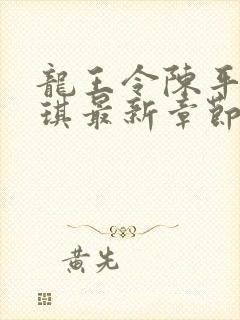 龍王令陳平
琪最新章節
黃先